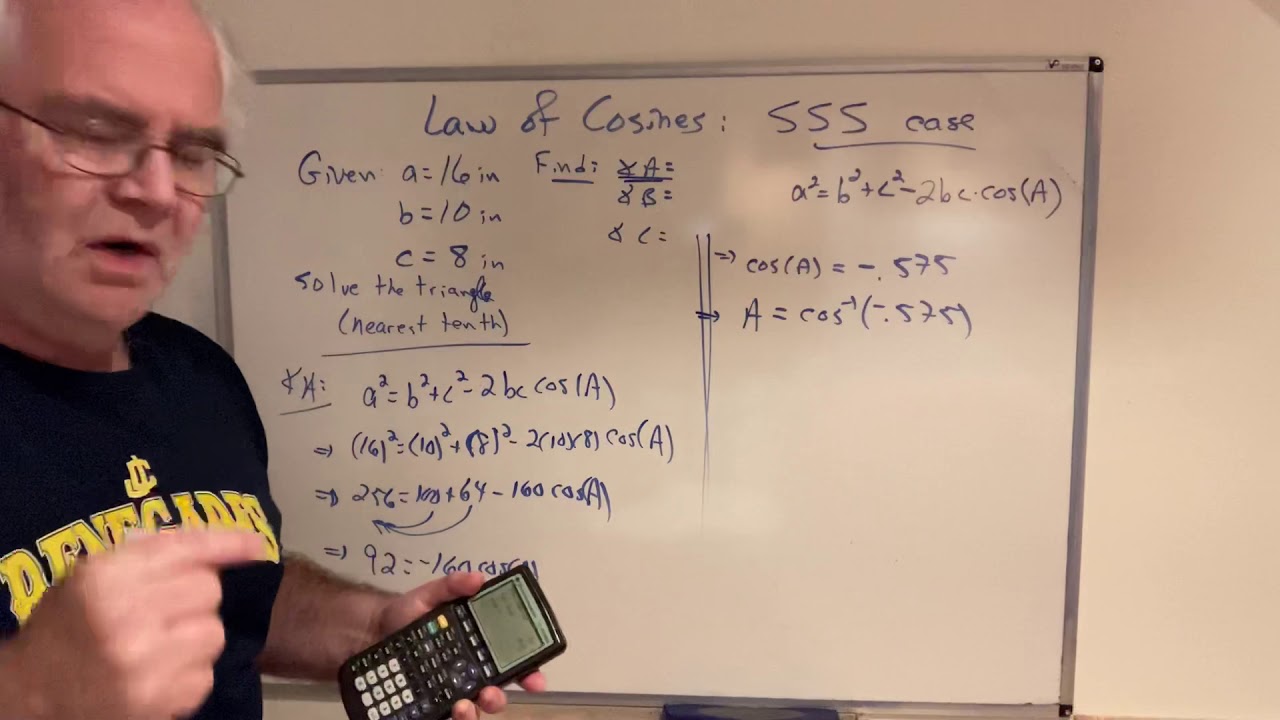 Law of Cosines: SSS case
Given: a=16 in
b=10 in
c=8 in
Solve the triangle
(nearest tenth)
Find: ∡A=
∡B=
∡C=
a²=b²+c²-2bc·cos(A)
∡A:
a²=b²+c²-2bc cos(A)
⇒ (16)²=(10)²+(8)²-2(10)(8) cos(A)
⇒ 256=100+64-160 cos(A)
⇒ 92=-160
⇒ cos(A) = -.575
⇒ A = cos⁻¹(-.575)
RENEGADES